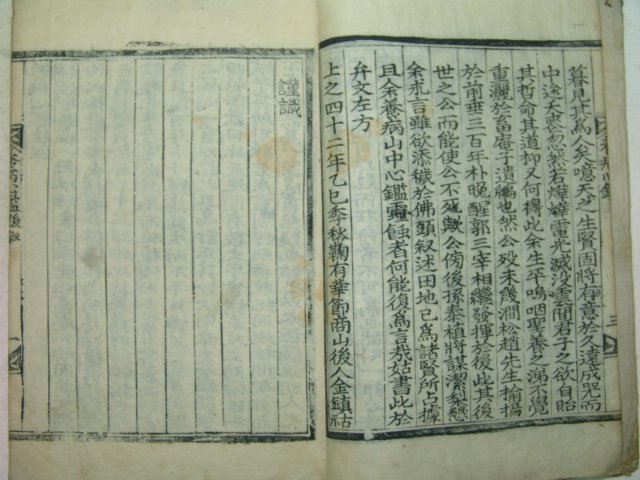 暮見其爲人矣噫天之生賢固將有意於久遠成就而
中途天喪忽然若燁燁電光滅沒重蘭君子之欲自貽
其哲命其道抑又何得此余生平嗚咽聖善之涕不覺
重灑於畜 子遺編也然公歿未幾澗松趙先生揄揚
於前垂三百年朴晚醒郭三宰相繼發揮於後此其後
世之公而能使公不死歟公傍後孫秦植將謀潔梨懇
余求言雖欲添穢於佛頭叙述田地已爲諸賢所占據
且余養病山中心鑑 蝕者何能復爲言哉姑書此於
弁文左方
上之四十二年乙巳季秋鞠有華節商山後人金鎭祜
謹識